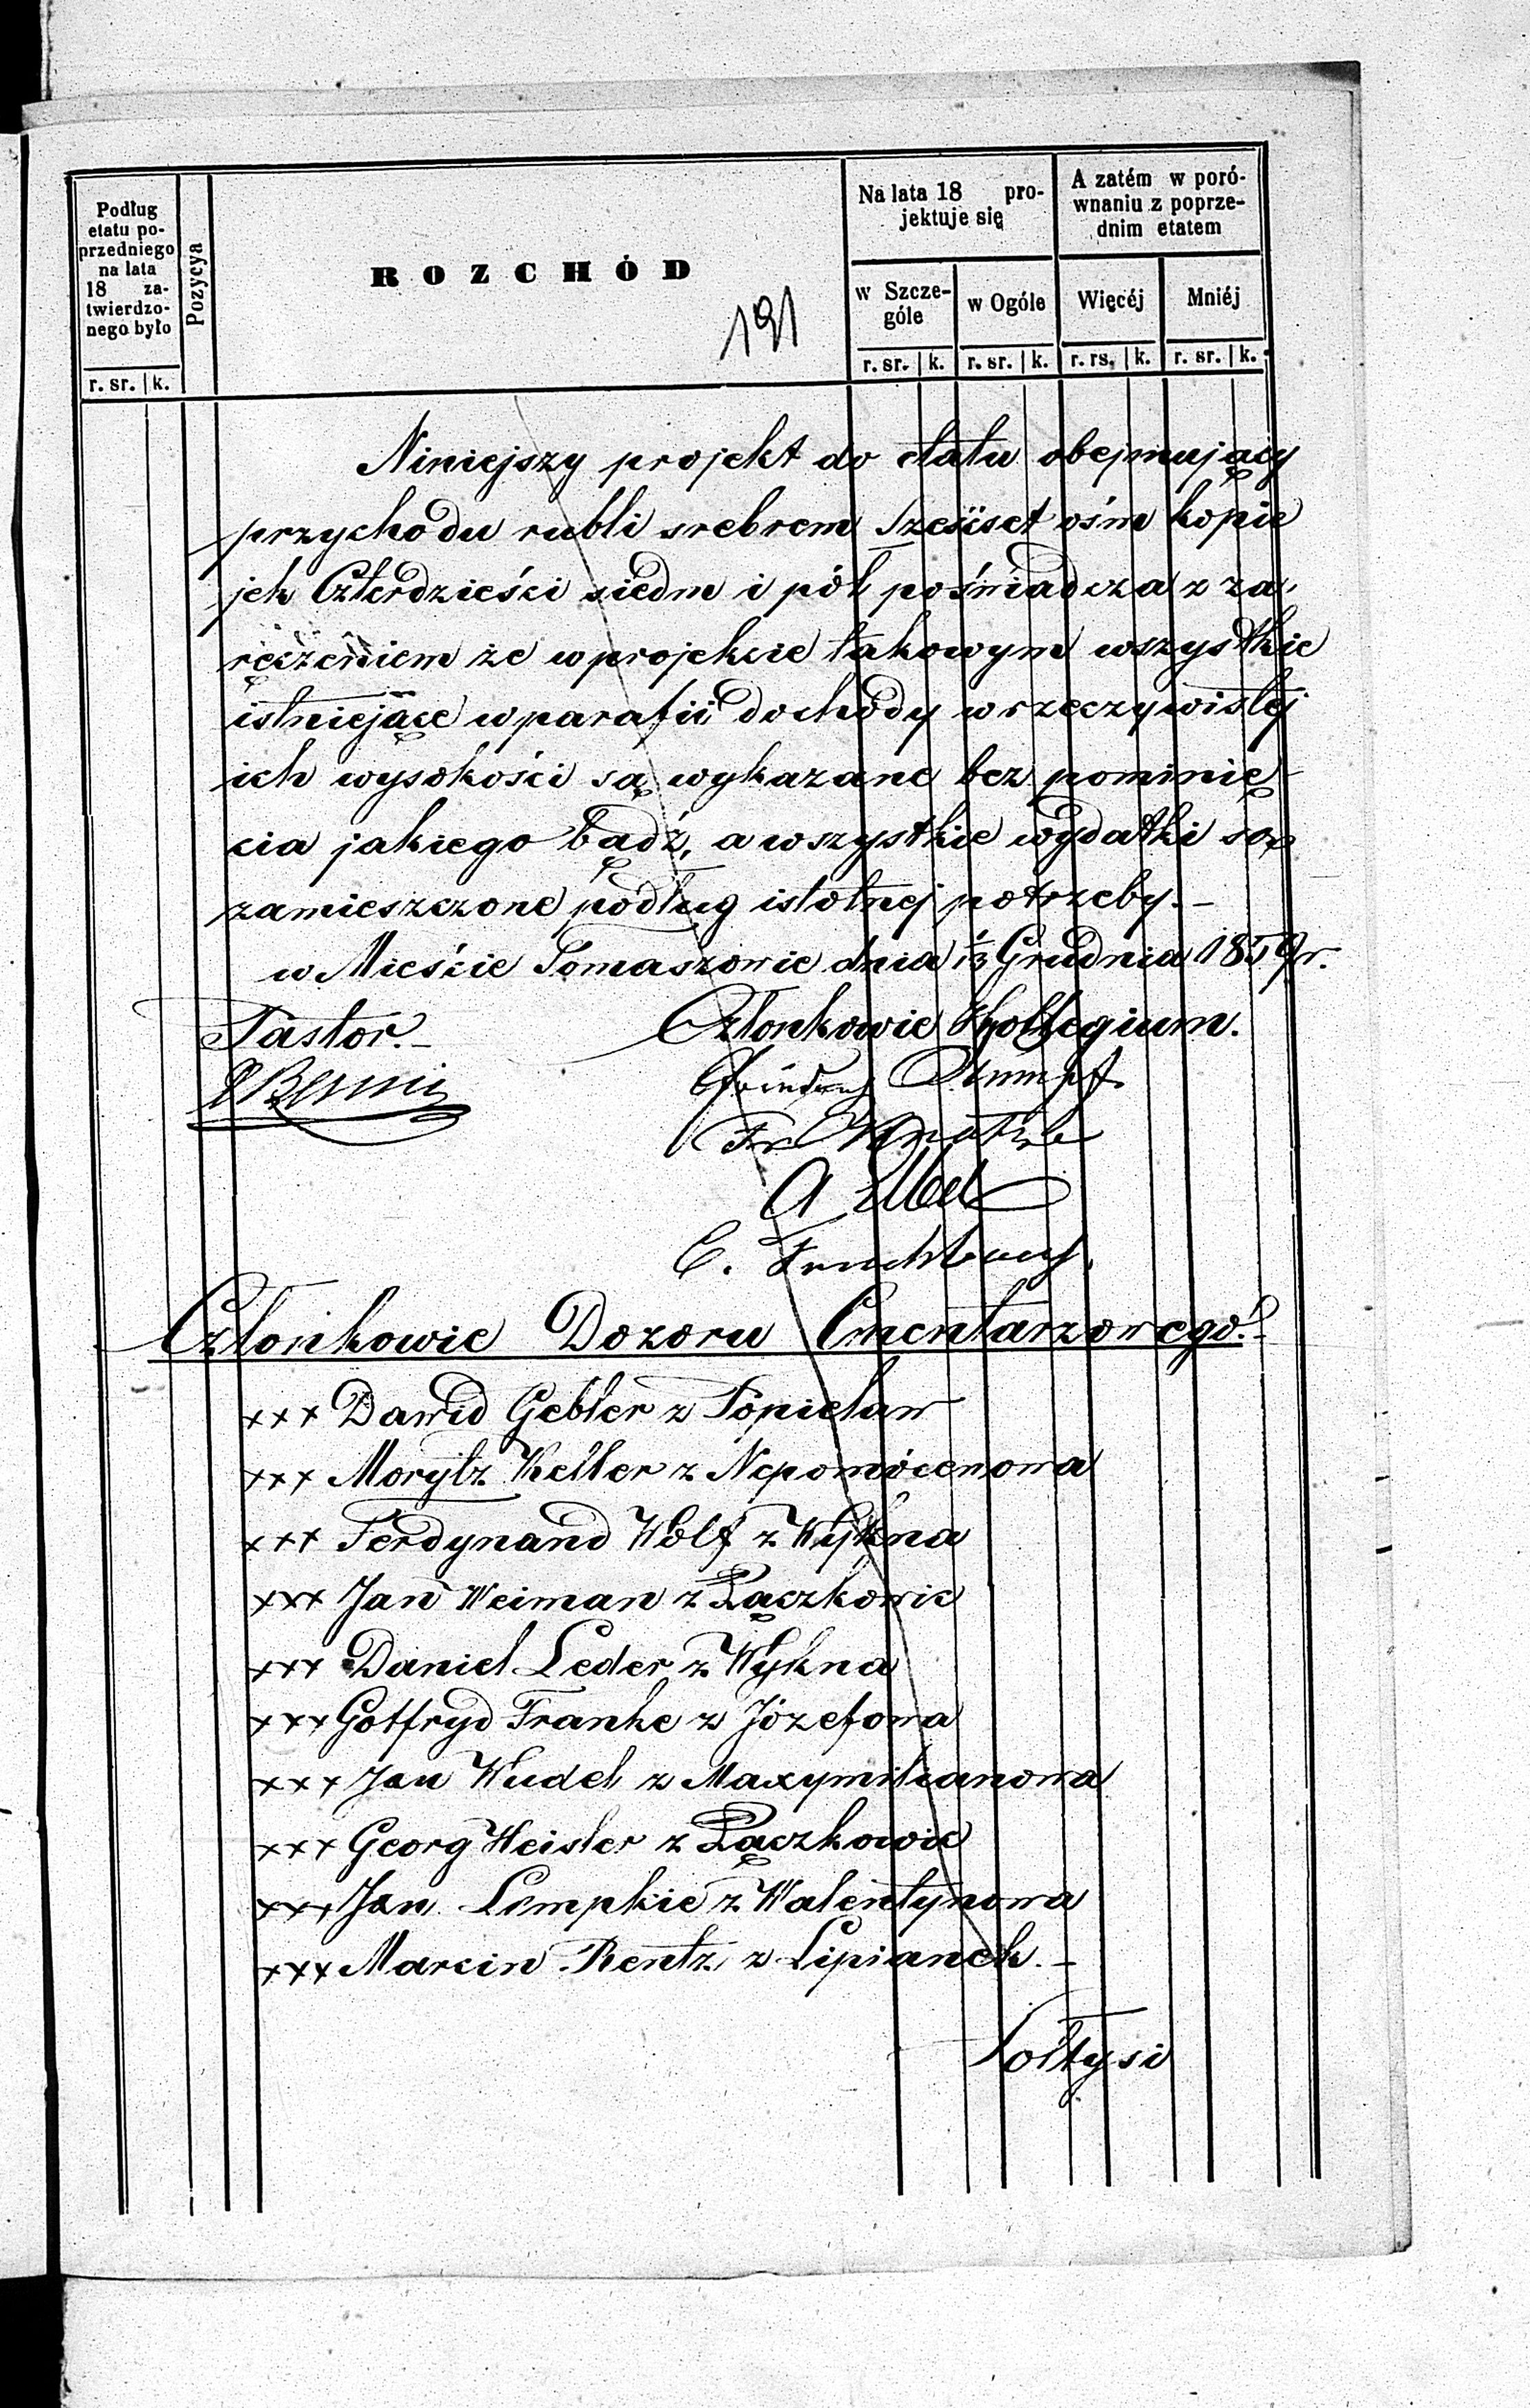 Podług
etatu po-
przedniego
na lata
18 za-
twierdzo-
nego było
r. sr. k.
Pozycya
ROZCHÓD
191
Na lata 18 pro-
jektuje się
w Szcze-
góle
w Ogóle
r. sr. k. r. sr. k.
A zatém w poró-
wnaniu z poprze-
dnim etatem
Więcéj
Mniéj
r. rs. k. r. sr. k.
Niniejszy projekt do etatu obejmujący
przychodu rubli srebrem Sześset ośm kopie
jek Czterdzieści siedm i pół poświadcza z za,
ręczeniem że w projekcie takowym wszystkie
istniejące w parafii dochody w rzeczywistej
ich wysokości są wykazane bez pominię
cia jakiego bądź, a wszystkie wydatki są
zamieszczone podług istotnej potrzeby.–
w Mieście Tomaszowie dnia 1/13 Grudnia 1859 r.
Pastor.–
Członkowie Kollegium.
Benni
Stumpf
Fr Knothe
A
C. Fruchtberg
Członkowie Dozoru Cmentarzowego.–
xxx Dawid Gebler z Popielaw
xxx Morytz Keller z Nepomócenowa
xxx Ferdynand Wolf z Wykna
xxx Jan Weiman z Łączkowic
xxx Daniel Leder z Wykna
xxx Gotfryd Franke z Józefowa
xxx Jan Wudel z Maxymilianowa
xxx Georg Heisler z Łączkowic
xxx Jan Lempkie z Walentynowa
xxx Marcin Rentz z Lipianek.–
Sołtysi